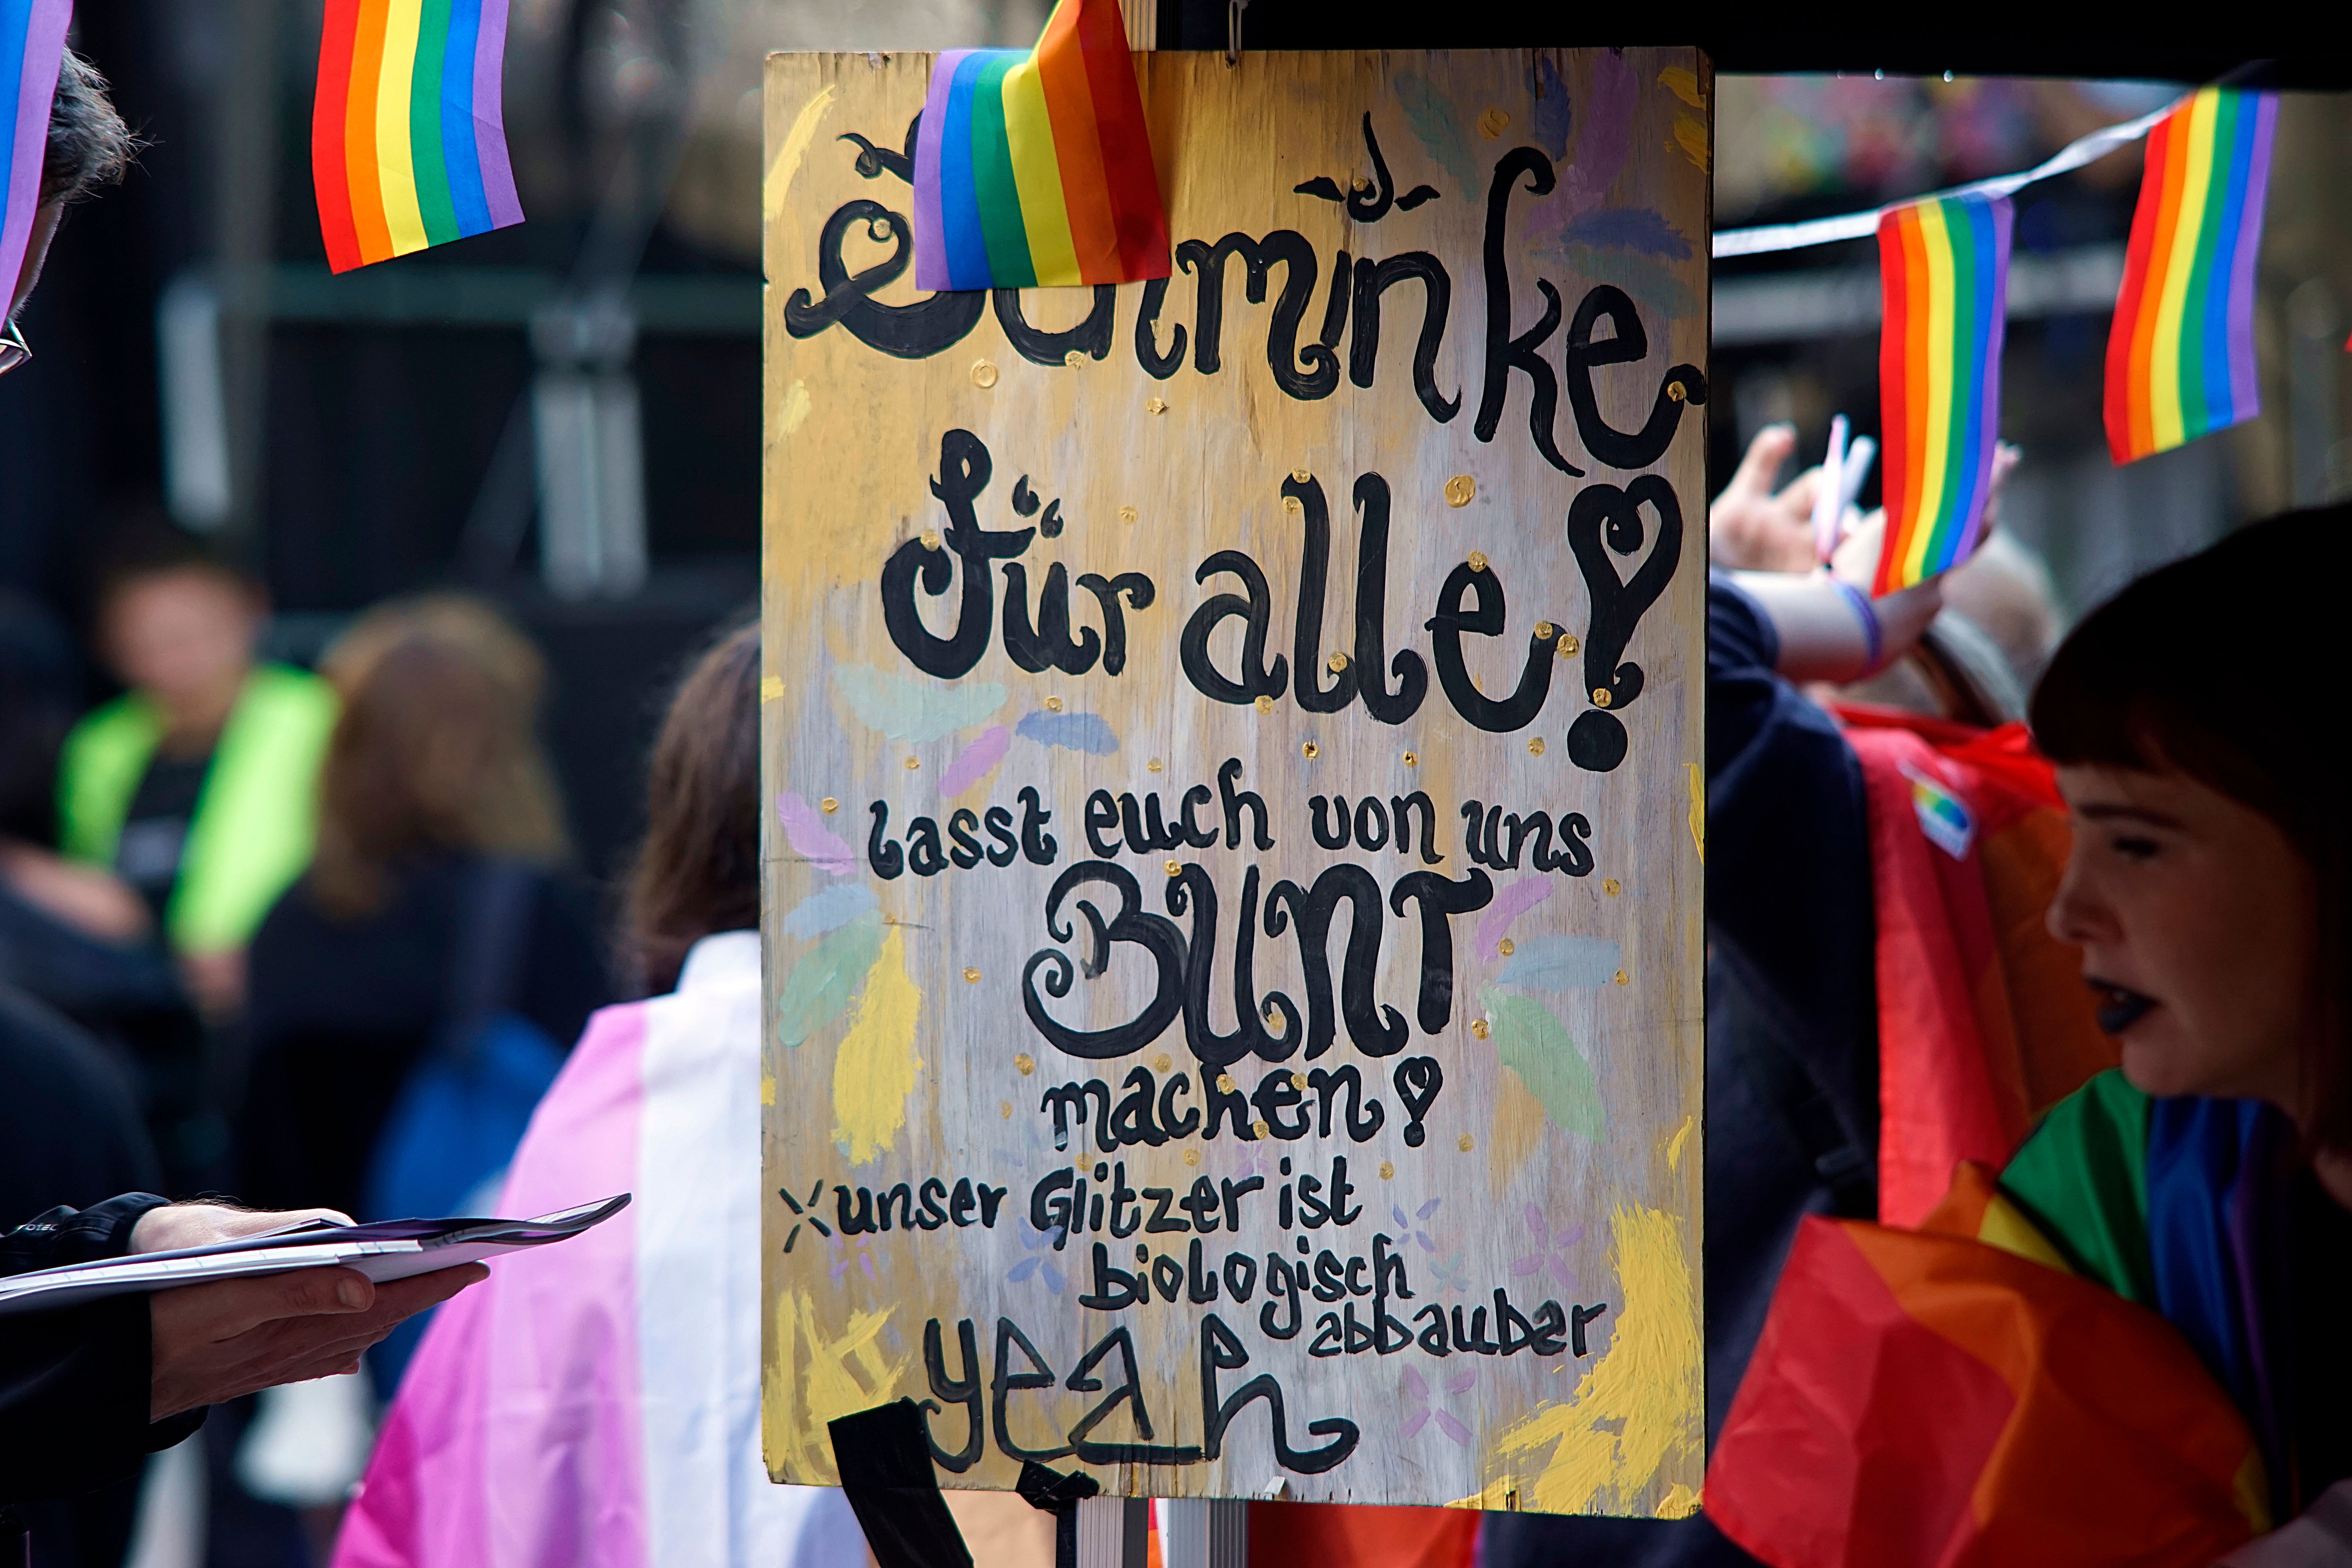 Schminke
für alle!
lasst euch von uns
BUNT
machen!
unser Glitzer ist
biologisch
abbaubar
yeah